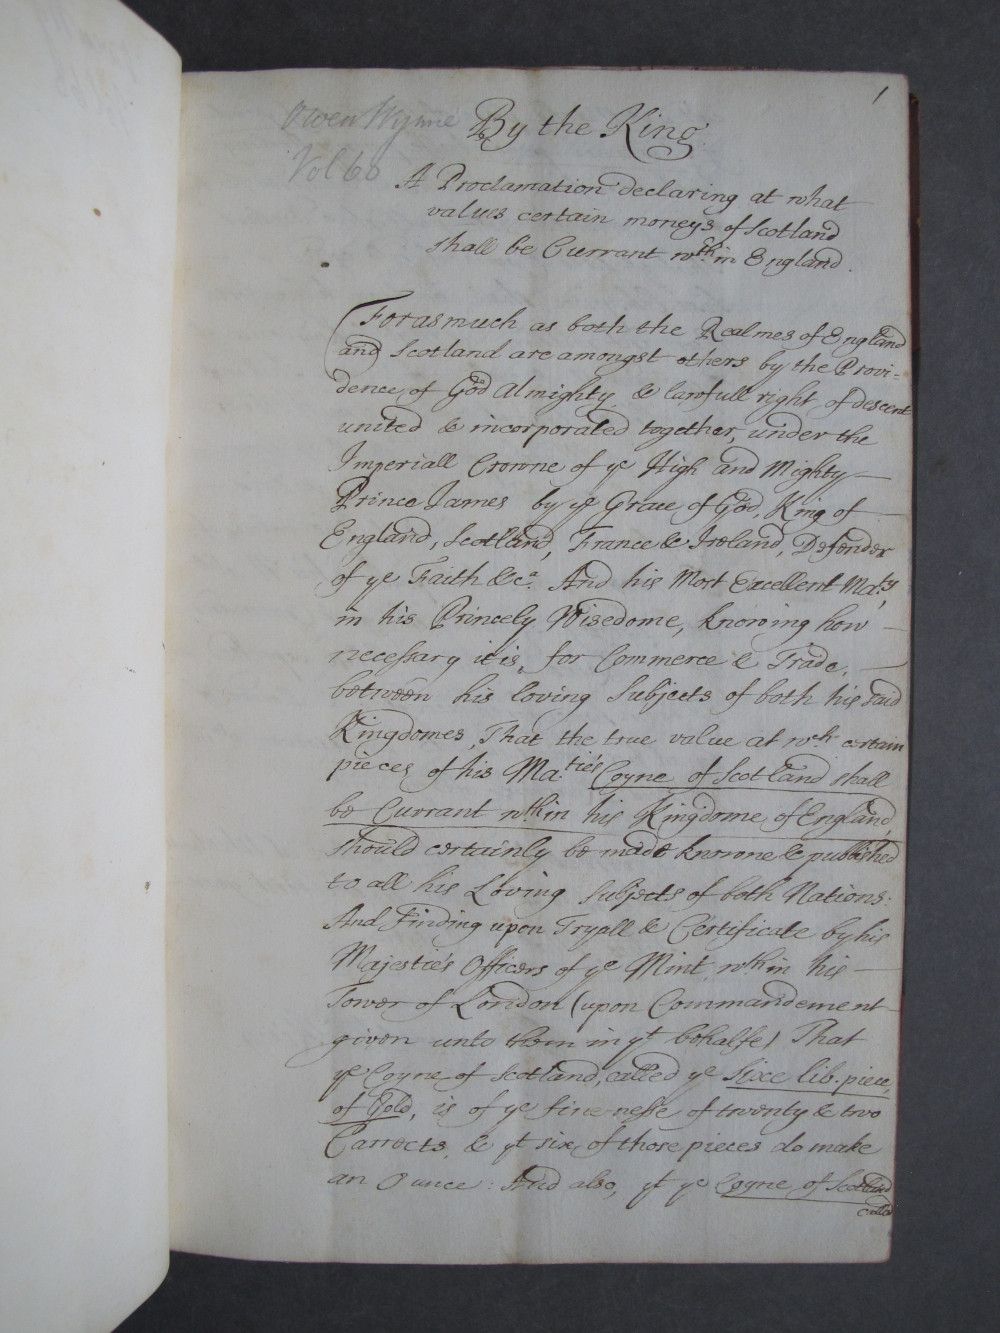 1
Owen Wynne
Vol 60
By the King.
A Proclamation declaring at what
values certain moneys of Scotland
shall be Currant wth.in England.
Forasmuch as both the Realmes of England
and Scotland are amongst others by the Provi=
dence of God Almighty & lawfull right of descent
united & incorporated together, under the
Imperiall Crowne of ye High and Mighty
Prince James by ye Grace of God, King of
England, Scotland, France & Ireland, Defender
of ye Faith &ca. And his Most Excellent Ma:ty
in his Princely Wisedome, knowing how
necessary it is, for Commerce & Trade,
between his loving Subjects of both his said
Kingdomes, That the true value at wch certain
pieces of his Ma:tie's Coyne of Scotland shall
be Currant wthin his Kingdome of England,
should certainly be made knowne & published
to all his Loving Subjects of both Nations:
And Finding upon Tryall & Certificate by his
Majestie's Officers of ye Mint wthin his
Tower of London (upon Commandement
given unto them in yt behalfe) That
ye Coyne of Scotland, called ye Sixe lib. piece,
of Gold, is of ye finenesse of twenty & two
Carrects, & yt six of those pieces do make
an Ounce: And also, yt ye Coyne of Scotland
called